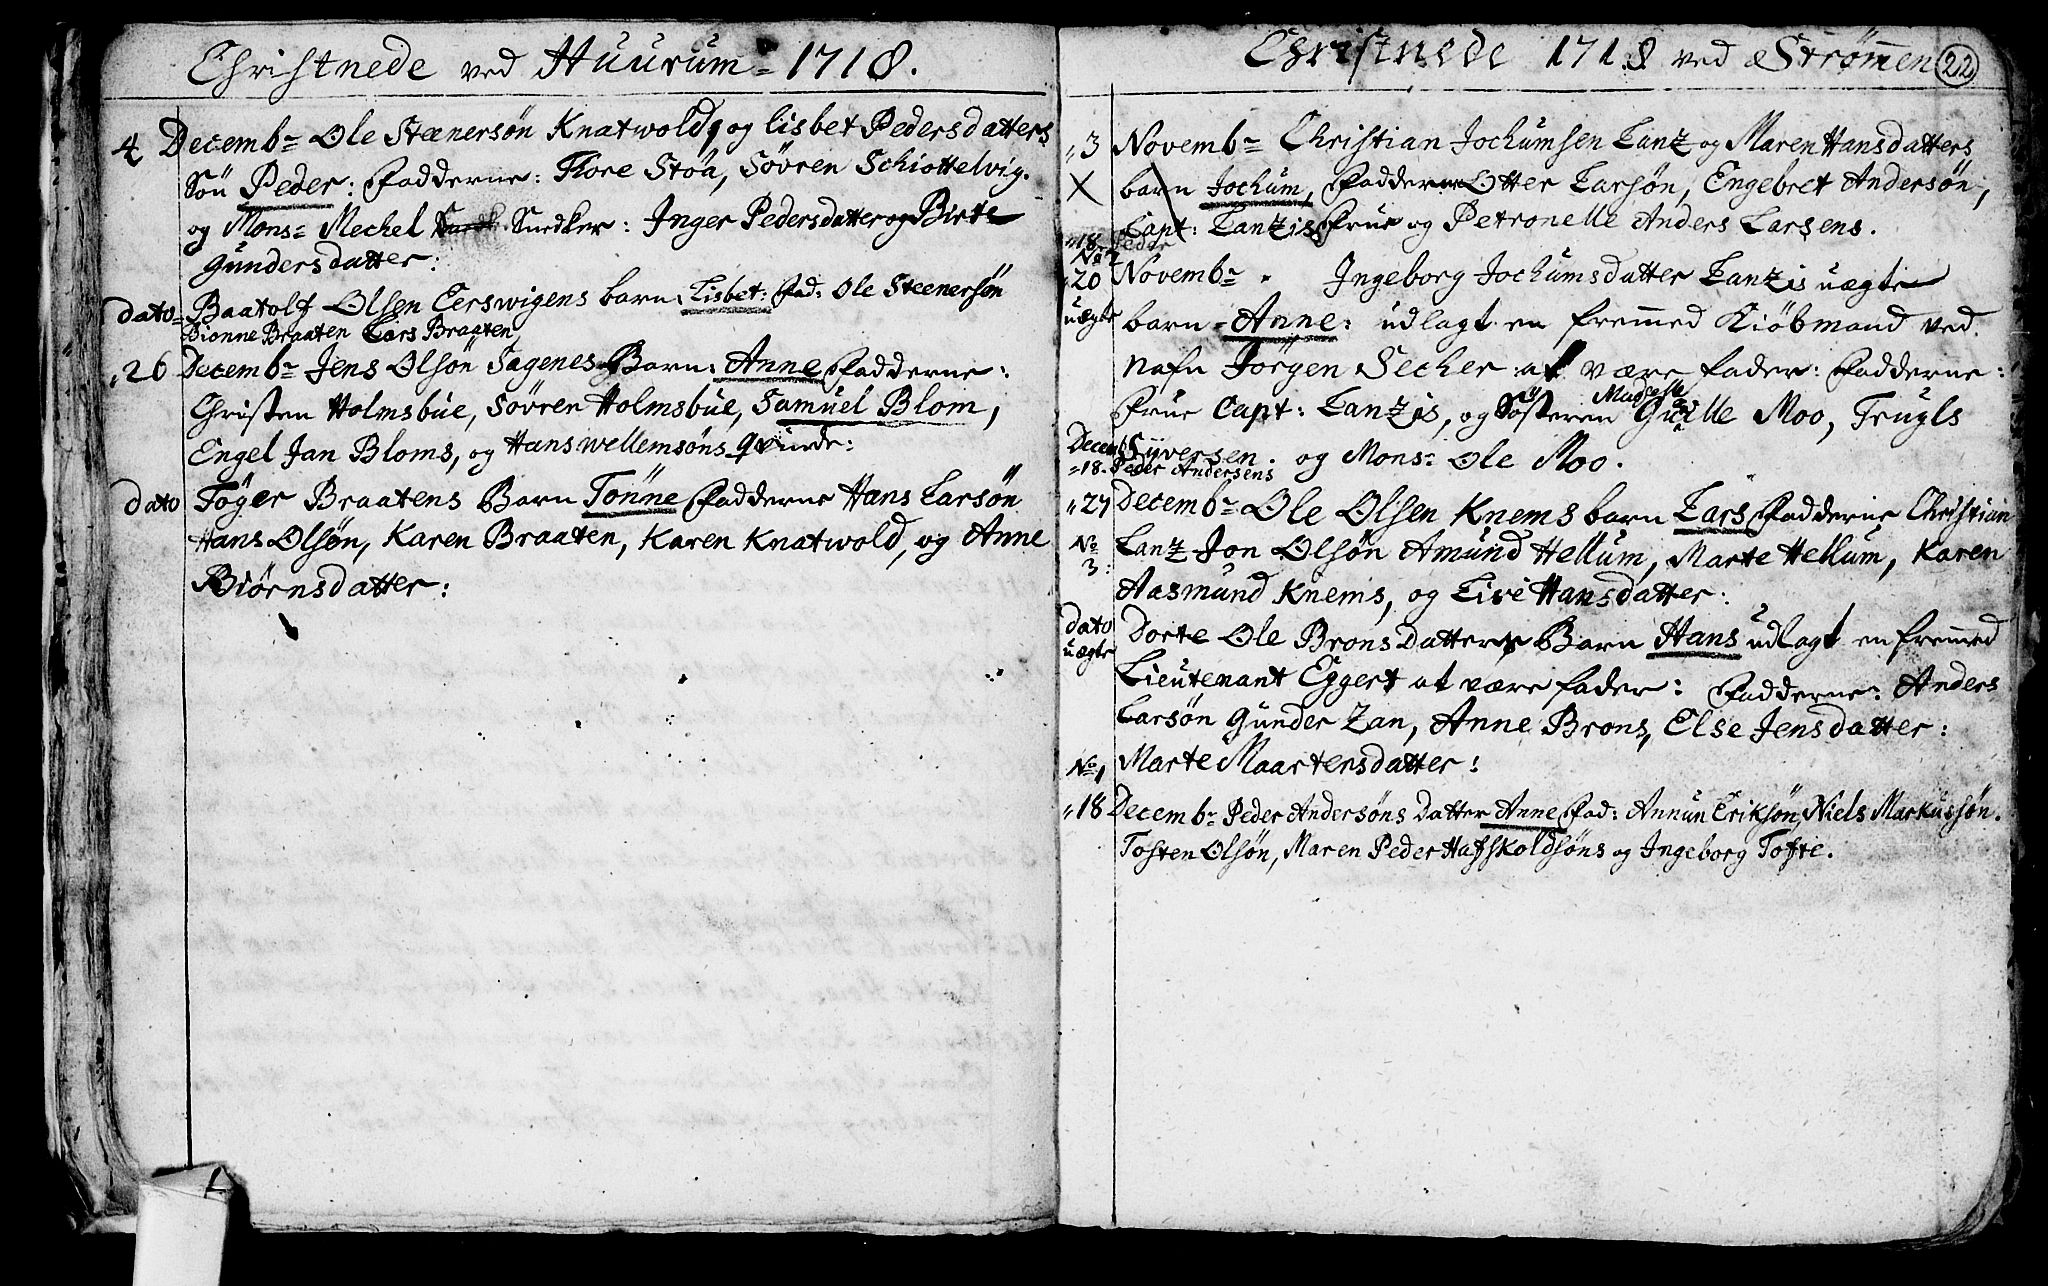 Christnede ved Huurum = 1718.
4 Decemb= Ole Steenersön Knatwold, og Lisbet Pedersdatters
Sön Peder: Fadderne: Tore Stöa, Sövren Schiottelvig.
og Mons= Mechel Snedker: Inger Pedersdatter og Birte
Gundersdatter:
dato= Baatolf Olsen Eerswigens barn Lisbet: Fad: Ole Steenersön
Dionne Braaten Lars Braaten
26 Decemb= Jens Olsön Sagenes Barn: Anne Fadderne:
Christen Holmsbue, Sövren Holmsbue, Samuel Blom,
Engel Jan Bloms, og Hans wellemsöns qvinde:
dato Töger Braatens Barn Tönne Fadderne Hans Larsön
Hans Olsön, Karen Braaten, Karen Knatwold, og Anne
Biörnsdatter:
Christnede 1718 ved Strömen 22
3 Novemb= Christian Jochumsen Lanz og Maren Hansdatters
X barn Jochum, Fadderne Otter Larsön, Engebret Andersön,
Capt: Lanzis Frue og Petronelle Anders Larsens.
18 Peder
No 2
20 Novemb= Ingeborg Jochumsdatter Lanzis uægte
uægte barn - Anne: udlagt en fremed Kiöbmand ved
Nafn Jörgen Secher at være fader: Fadderne:
Frue Capt: Lanzis, og Sösteren Gusille Moo, Trugls
Decemb Syversen. og Mons: Ole Moo.
18. Peder Andersens
27 Decemb= Ole Olsen Knems barn Lars Fadderne Christian
No 3: Lanz Jon Olsön Amund Hellum, Marte Hellum, Karen
Aasmund Knems, og Live Hansdatter:
dato Dorte Ole Bronsdatters Barn Hans udlagt en fremed
uægte Lieutenant Eggert at være fader: Fadderne: Anders
Larsön Gunder Zan, Anne Brons, Else Jensdatter:
No 1 Marte Maartensdatter:
18 Decemb= Peder Andersöns Datter Anne Fad: Annun Eriksön, Niels Markussön.
Tosten Olsön, Maren Peder Hafskoldsöns og Ingeborg Tofte.